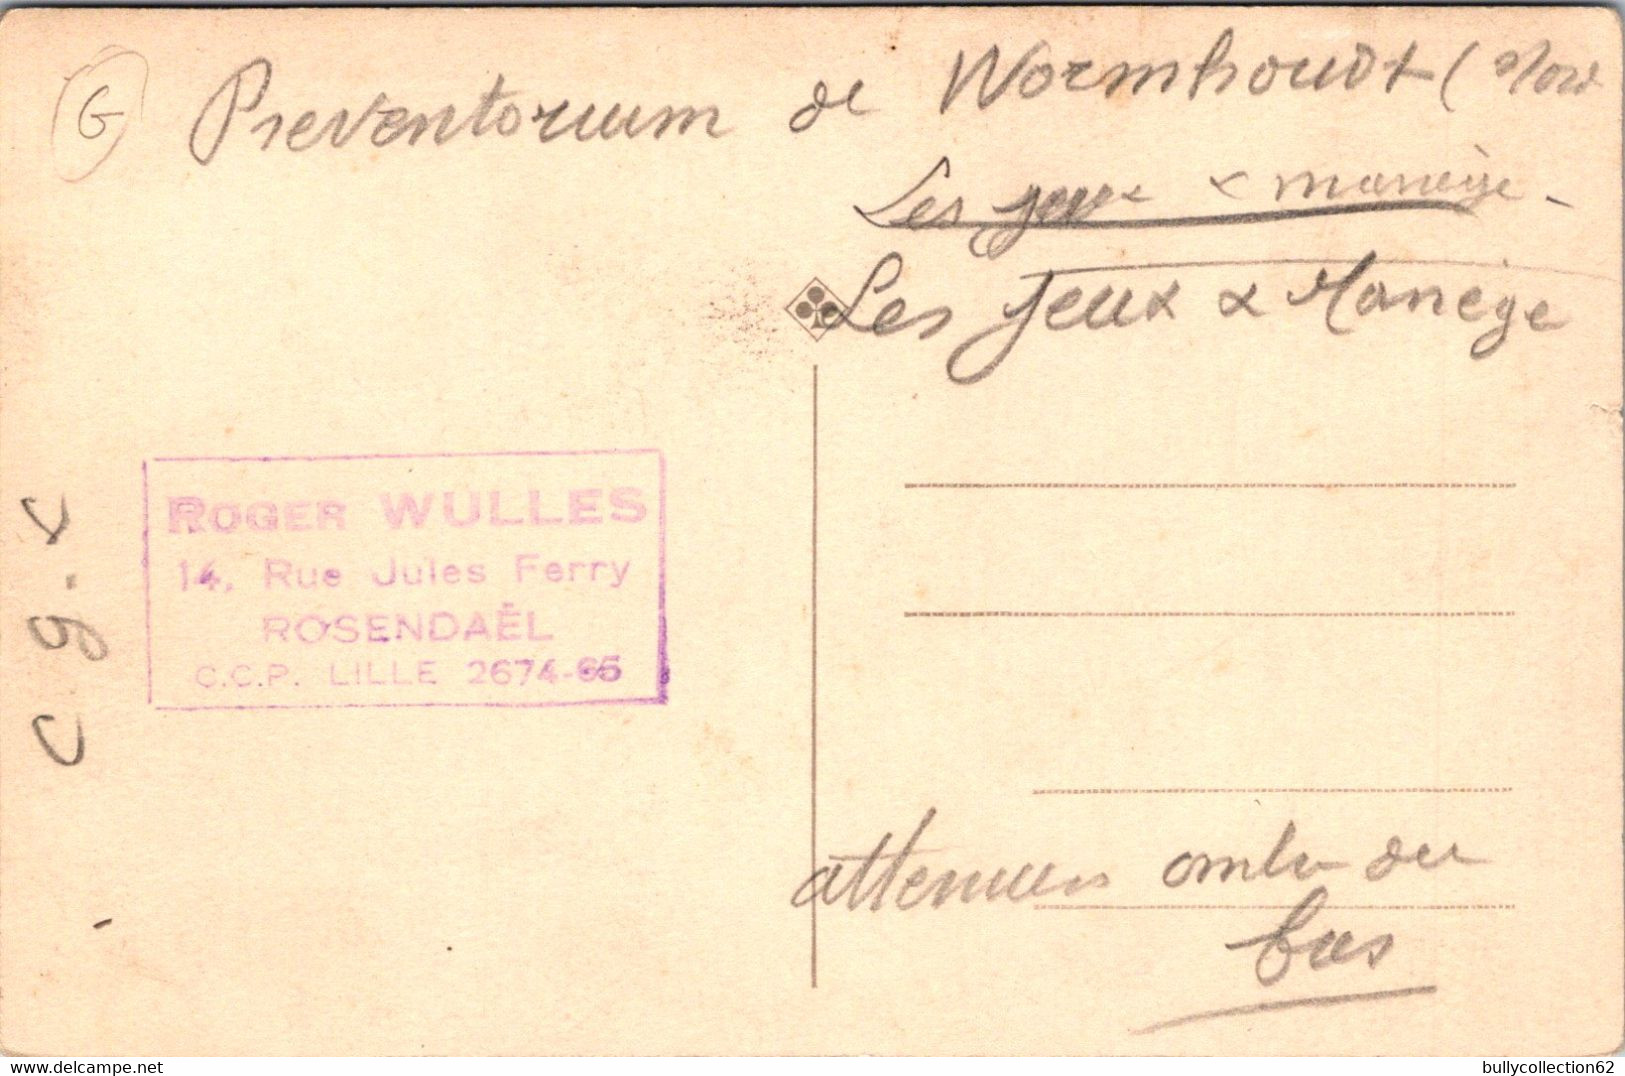 G
Preventorium de Wormhoudt (Nord
Les jeux & manège -
Les Jeux & Manège
ROGER WULLES
14, Rue Jules Ferry
ROSENDAËL
C.C.P. LILLE 2674-65
C g.
attenuer ombre du
bas
bullycollection62